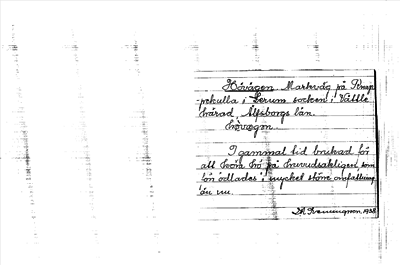 Hövägen. Markväg på Knap-
pekulla i Lerum socken i Vättle
härad, Älfsborgs län.
hövægen.
I gammal tid brukad för
att köra hö på huvudsakligen, som
då odlades i mycket större omfattning
än nu.
1938